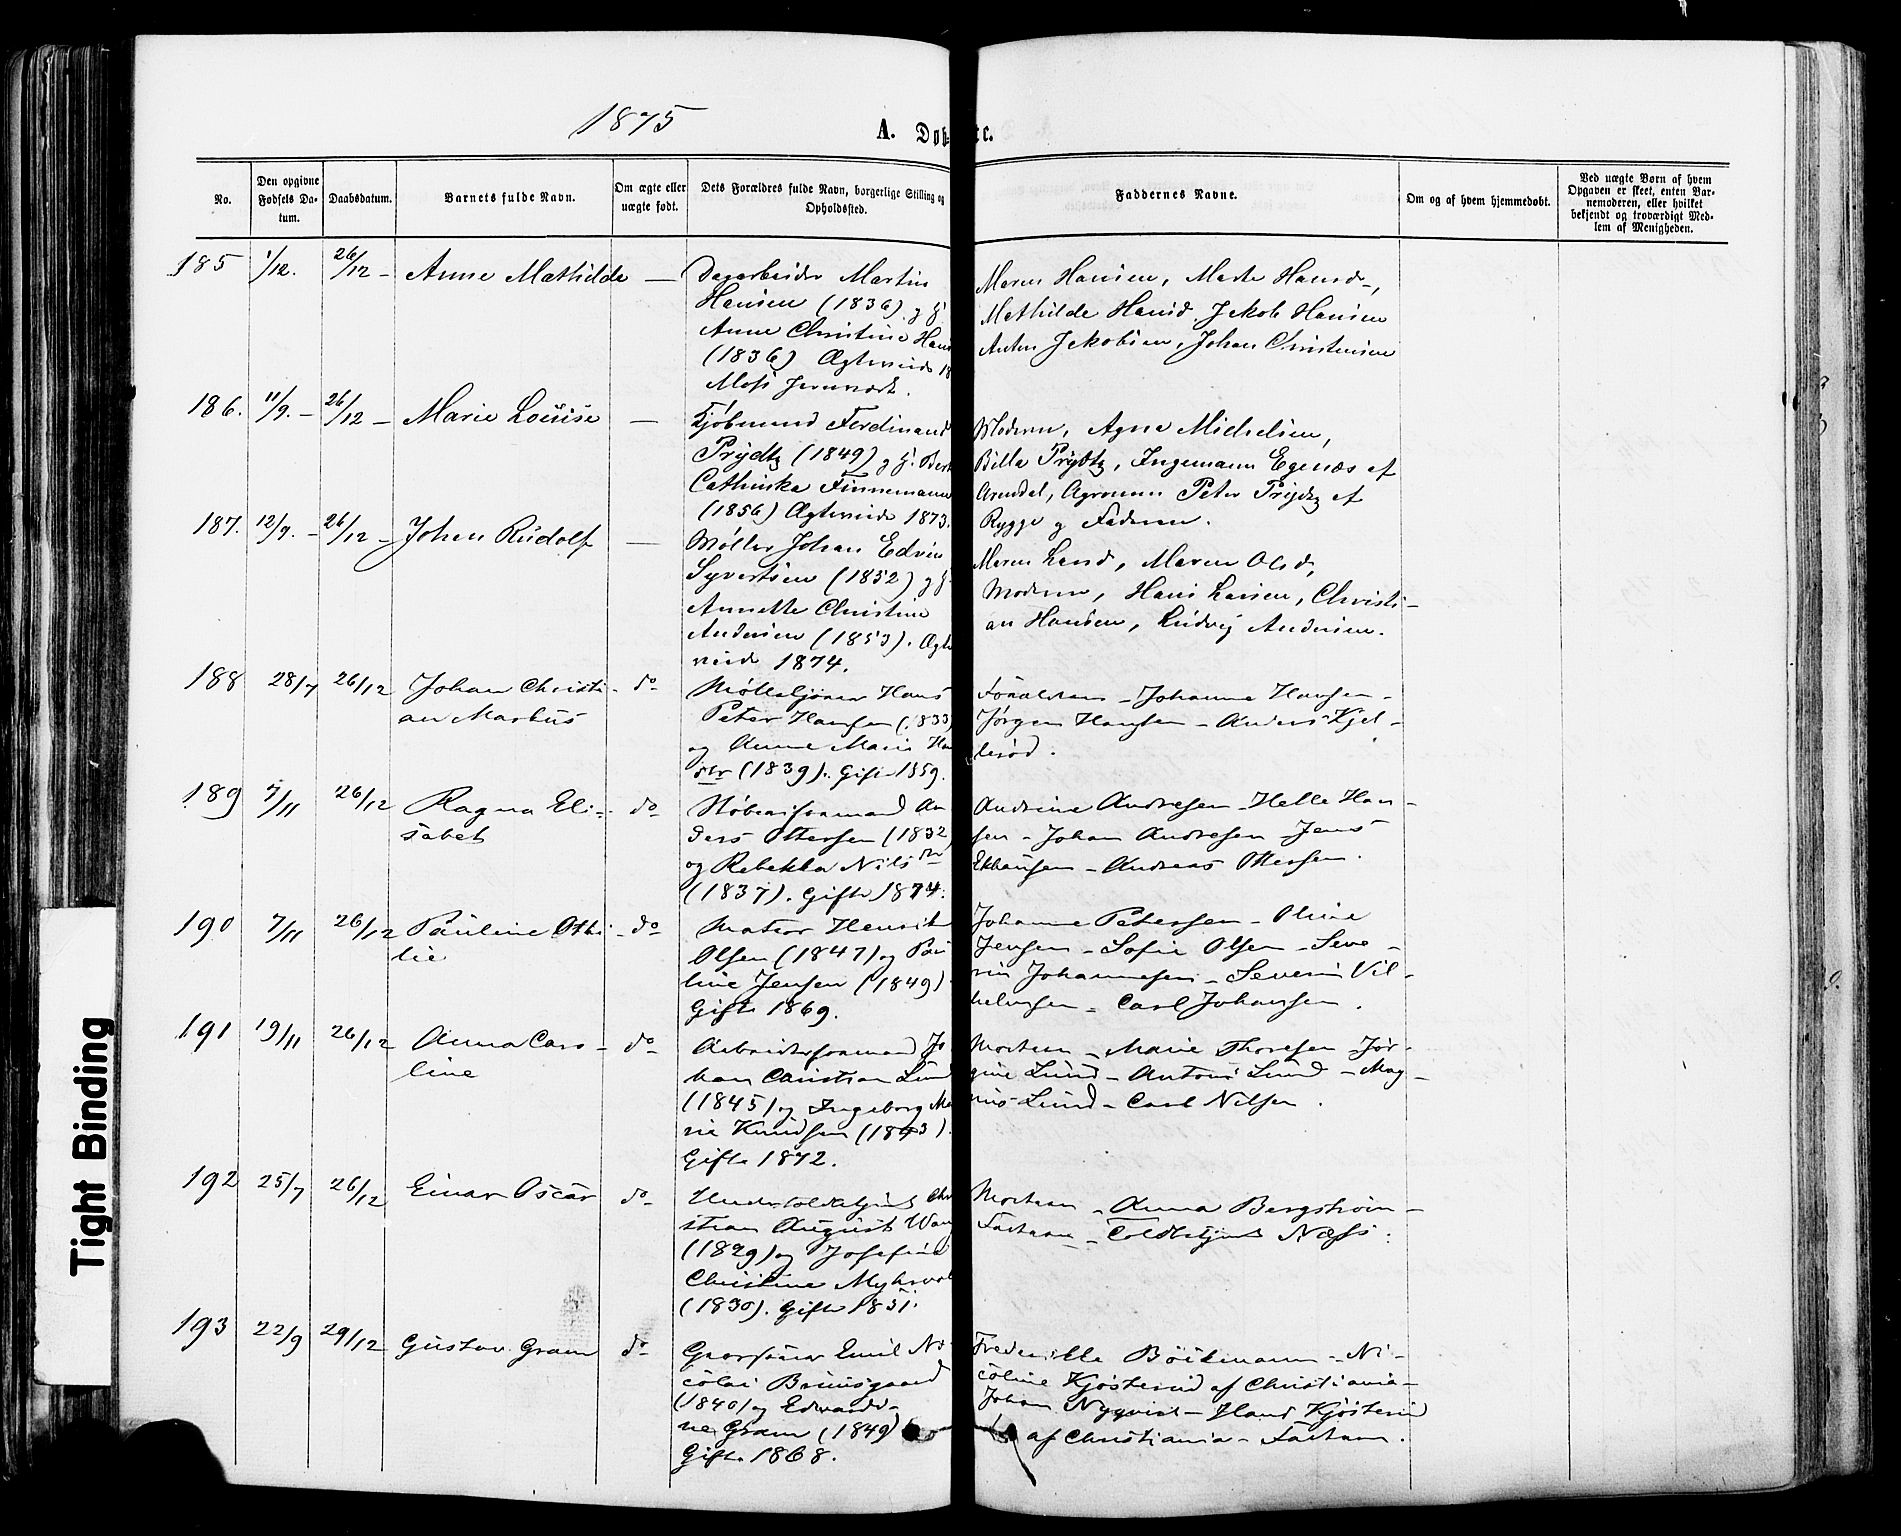 1875
A. Døb
No.
Den opgivne Fødsels Datum.
Daabsdatum.
Barnets fulde Navn.
Om ægte eller uægte født.
Dets Forældres fulde Navn, borgerlige Stilling og Opholdssted.
Faddernes Navne.
Om og af hvem hjemmedøbt.
Ved uægte Børn af hvem Opgaven er skeet, enten Barnemoderen, eller hvilket bekjendt og troværdigt Medlem af Menigheden.
185 1/12. 26/12 – Anne Mathilde —
Dagarbeider Martin
Hansen (1836) og H.
Anne Christine Hans
(1836) Ægteviede 18
Moss Jernværk.
Maren Hansen, Marte Hansd.,
Mathilde Hansd. Jakob Hansen
Anton Jakobsen, Johan Christensen
186. 11/9. – 26/12 – Marie Louise —
Kjøbmand Ferdinand
Prydtz (1849) og H. Berte
Cathinka Finnemann
(1856) Ægteviede 1873.
Moderen, Agna Michelsen,
Billa Prydtz, Ingemann Egenæs af
Arendal, Agronom Peter Prydtz af
Rygge og Faderen.
187. 12/9. – 26/12 – Johan Rudolf —
Møller Johan Edvin
Syvertsen (1852) og H.
Annette Christine
Andersen (1853). Ægte
viede 1874.
Maren Larsd, Maren Olsd,
Moderen, Hans Larsen, Christi-
an Hansen, Ludvig Andersen.
188 28/7 26/12 Johan Christi- do
an Markus
Hans
Peter Hansen (1833)
og Anne Marie Han
dtr (1839). Gifte 1859.
Forældrene – Johanne Hansen –
Jørgen Hansen – Anders Kjel-
lerød.
189 7/11 26/12 Ragna Eli- do
sabet
Støberiformand An
ders Ottersen (1832)
og Rebekka Nilsdtr
(1837). Gifte 1874.
Andrine Andresen – Helle Han-
sen – Johan Andresen – Jens
– Andreas Ottersen.
190 7/11 26/12 Pauline Othi- do
lie
Matros Henrik
Olsen (1847) og Pau
line Jensen (1849)
Gifte 1869.
Johanne Petersen – Oline
Jensen – Sofie Olsen – Seve-
rin Johannesen – Severin Vil-
helmsen – Carl Johansen.
191 19/11 26/12 Anna Caro- do
line
Arbeidsformand Jo
han Christian Lund
(1845) og Ingeborg Ma
rie Knudsen (1843).
Gifte 1872.
Moderen – Marie Thoresen – Jør-
gine Lund – Anton Lund – Mag-
nus Lund – Carl Nilsen.
192 25/7 26/12 Einar Oscar do
Undertoldbetjent Chri
stian August Wang
(1829) og Josefine
Christine Myhrvol
(1830). Gifte 1851.
Moderen – Anna Bergstrøm –
Faderen – Toldbetjent Næss.
193 22/9 29/12 Gustav Gram do
Emil Ni
colai Bruusgaard
(1840) og Edvardi-
ne Gram (1849)
Gifte 1868.
Frederikke Böckmann – Ni-
coline Kjøsterud af Christiania –
Johan Nyqvist – Kjøsterud
af Christiania – Faderen.
Tight Binding